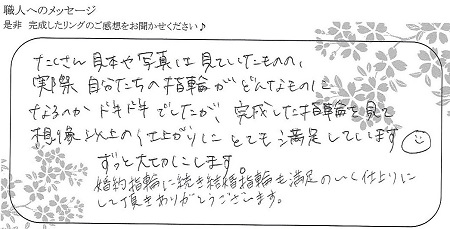 職人へのメッセージ
是非 完成したリングのご感想をお聞かせください♪
たくさん見本や写真は見ていたものの、
実際自分たちの指輪がどんなものに
なるのかドキドキでしたが、完成した指輪を見て
想像以上の仕上がりにとても満足しています
ずっと大切にします。
婚約指輪に続き結婚指輪も満足のいく仕上りに
して頂きありがとうございます。